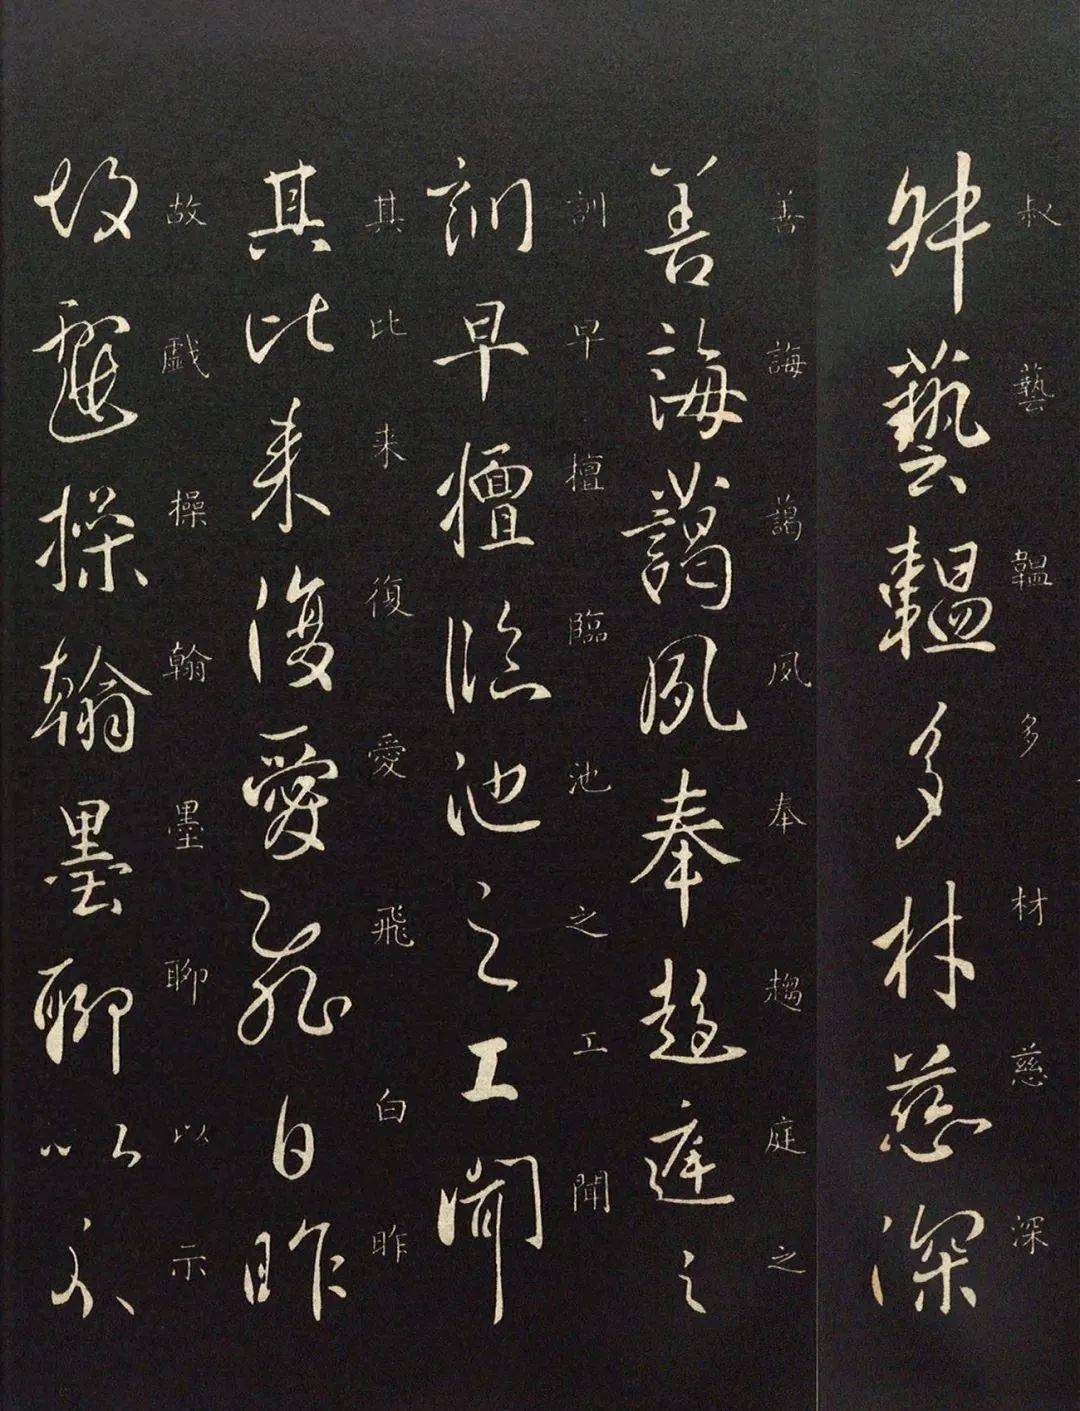 叔藝韞多材慈深
叔藝韞多材慈深
善誨藹夙奉趨庭之
善誨藹夙奉趨庭之
訓早擅臨池之工聞
訓早擅臨池之工聞
其比来復愛飛白昨
其比来復愛飛白昨
故戲操翰墨聊以示
故戲操翰墨聊以示